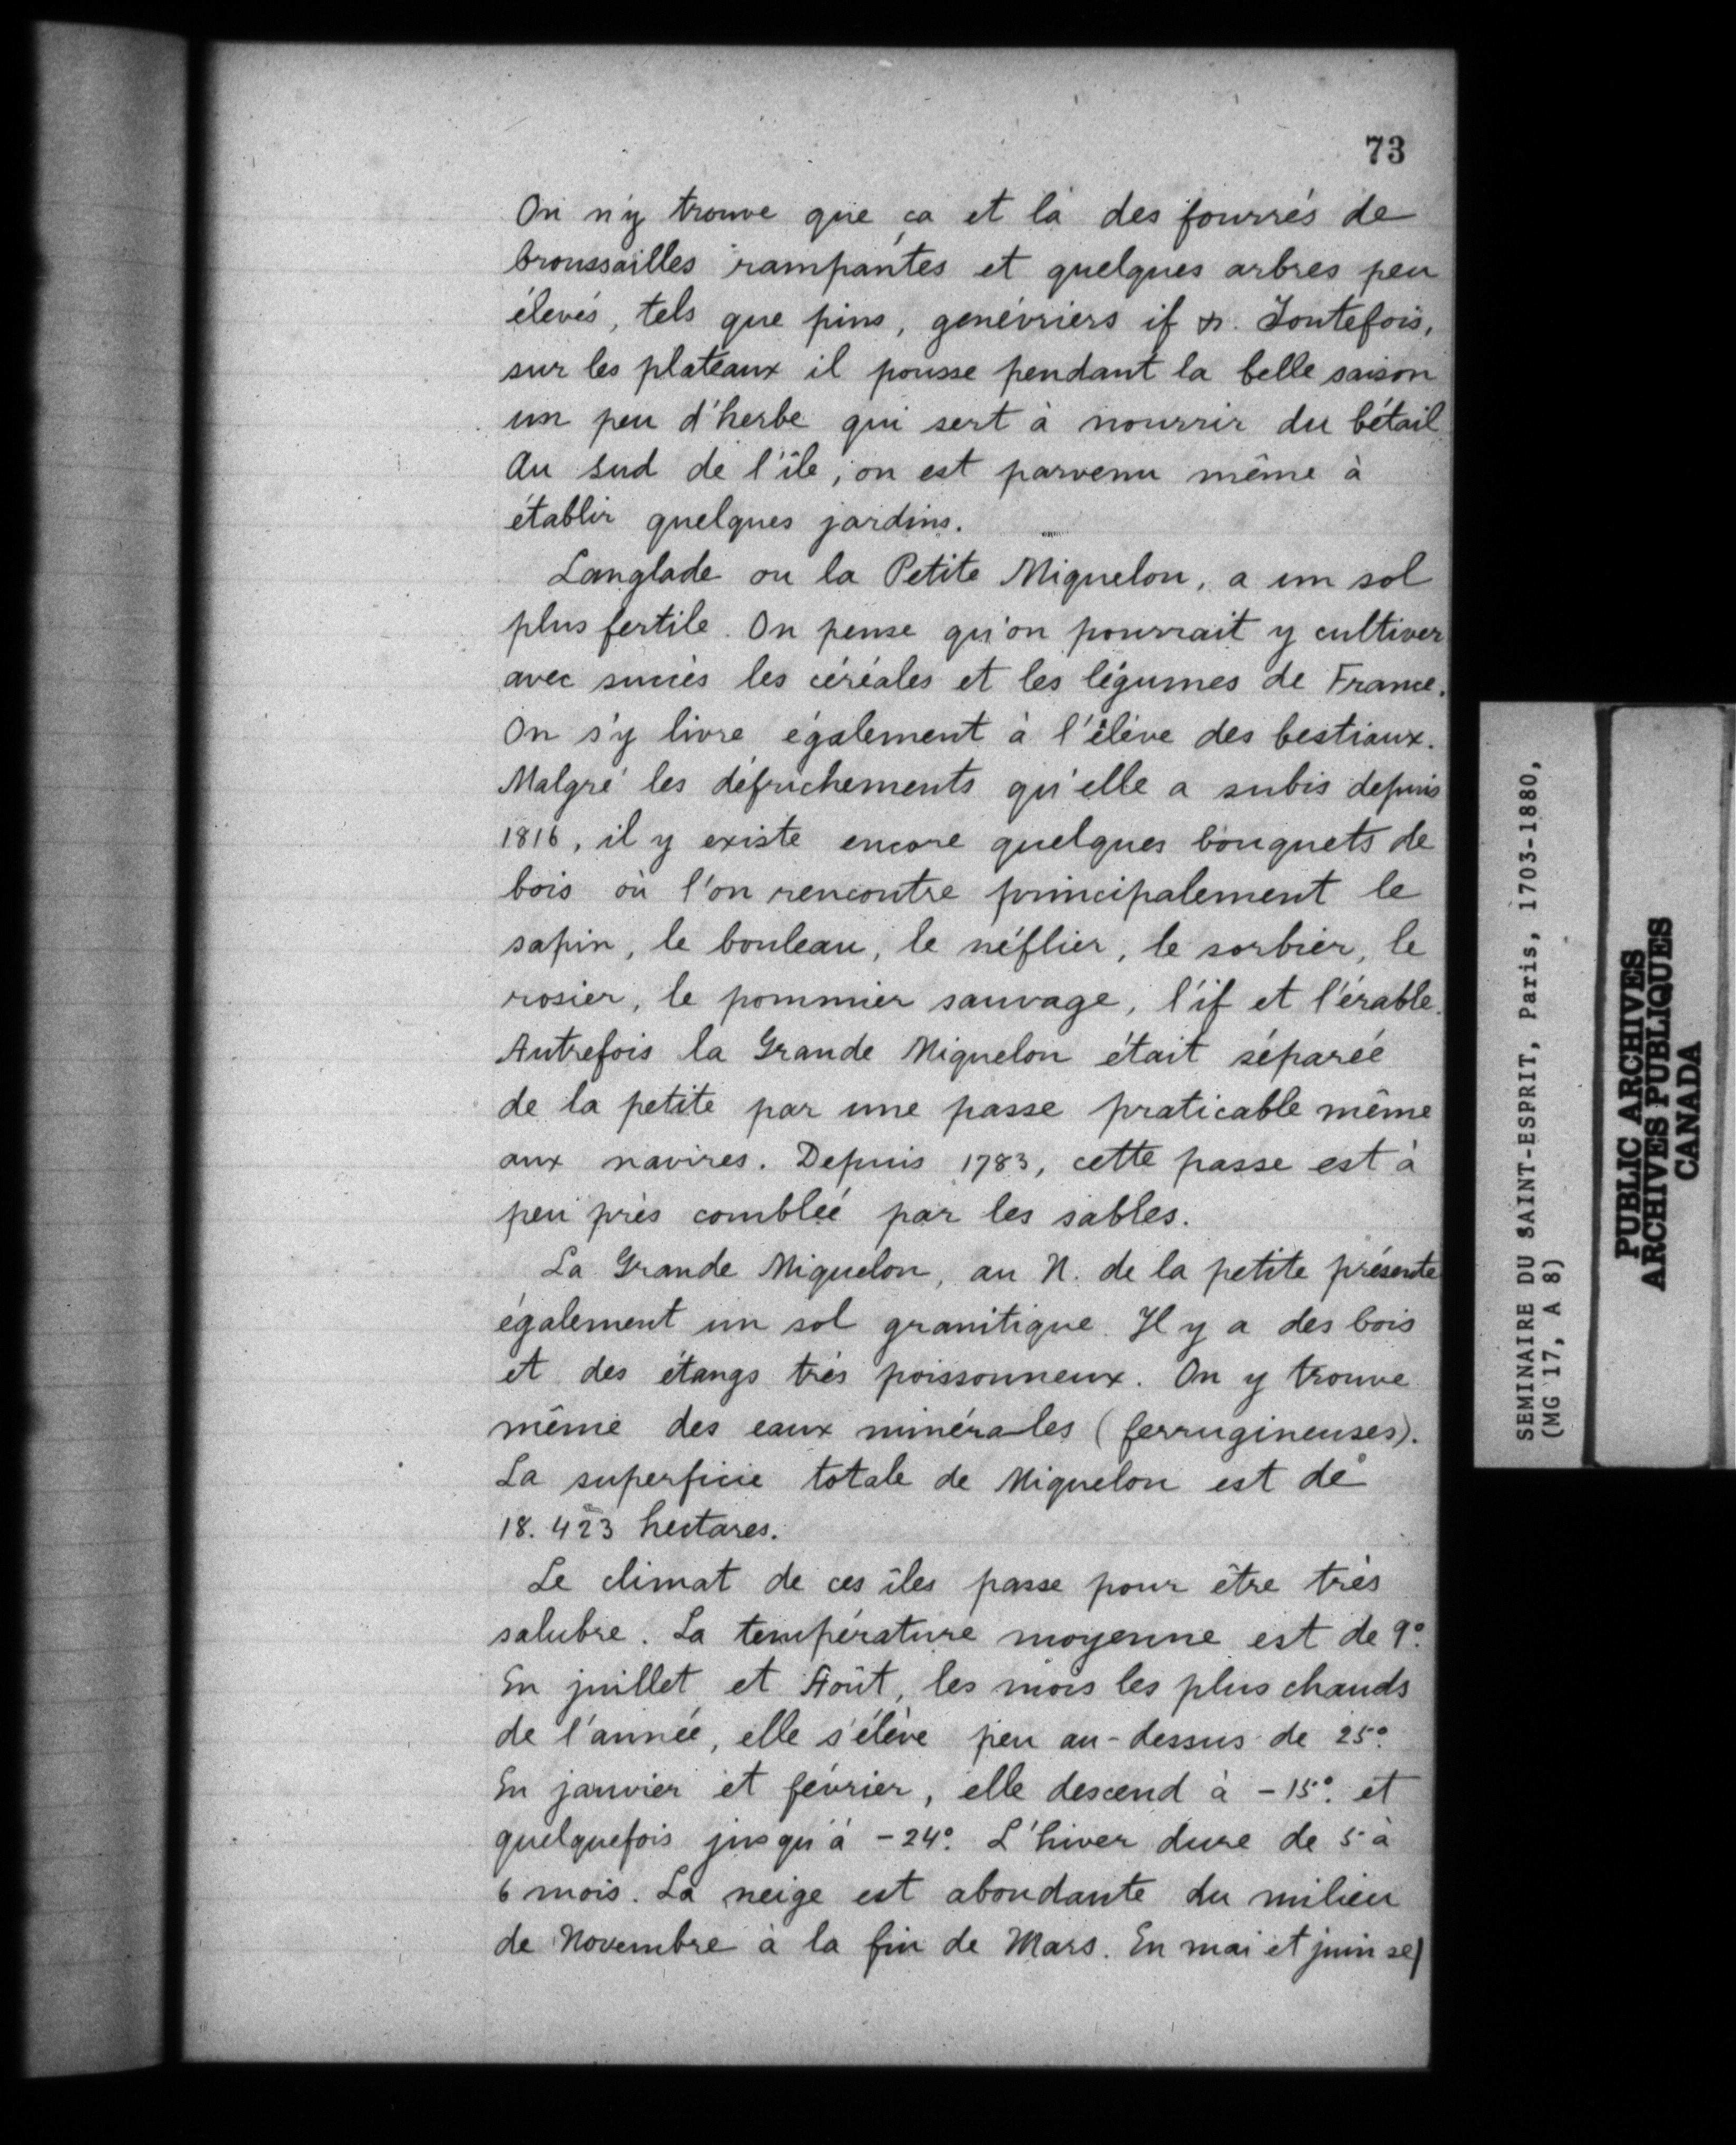 73
On n'y trouve que ça et là des fourrés de
broussailles rampantes et quelques arbres peu
élevés, tels que pins, genévriers if &. Toutefois,
sur les plateaux il pousse pendant la belle saison
un peu d'herbe qui sert à nourrir du bétail
Au sud de l'île, on est parvenu même à
établir quelques jardins.
Langlade ou la Petite Miquelon, a un sol
plus fertile. On pense qu'on pourrait y cultiver
avec succès les céréales et les légumes de France.
On s'y livre également à l'élève des bestiaux.
Malgré les défrichements qu'elle a subis depuis
1816, il y existe encore quelques bouquets de
bois où l'on rencontre principalement le
sapin, le bouleau, le néflier, le sorbier, le
rosier, le pommier sauvage, l'if et l'érable.
Autrefois la Grande Miquelon était séparée
de la petite par une passe praticable même
aux navires. Depuis 1783, cette passe est à
peu près comblée par les sables.
La Grande Miquelon, au N. de la petite présente
également un sol granitique. Il y a des bois
et des étangs très poissonneux. On y trouve
même des eaux minérales (ferrugineuses).
La superficie totale de Miquelon est de
18.423 hectares.
Le climat de ces îles passe pour être très
salubre. La température moyenne est de 9°.
En juillet et Août, les mois les plus chauds
de l'année, elle s'élève peu au-dessus de 25°.
En janvier et février, elle descend à -15°. et
quelquefois jusqu'à -24°. L'hiver dure de 5 à
6 mois. La neige est abondante du milieu
de Novembre à la fin de Mars. En mai et juin se)
SEMINAIRE DU SAINT-ESPRIT, Paris, 1703-1880,
(MG 17, A 8)
PUBLIC ARCHIVES
ARCHIVES PUBLIQUES
CANADA